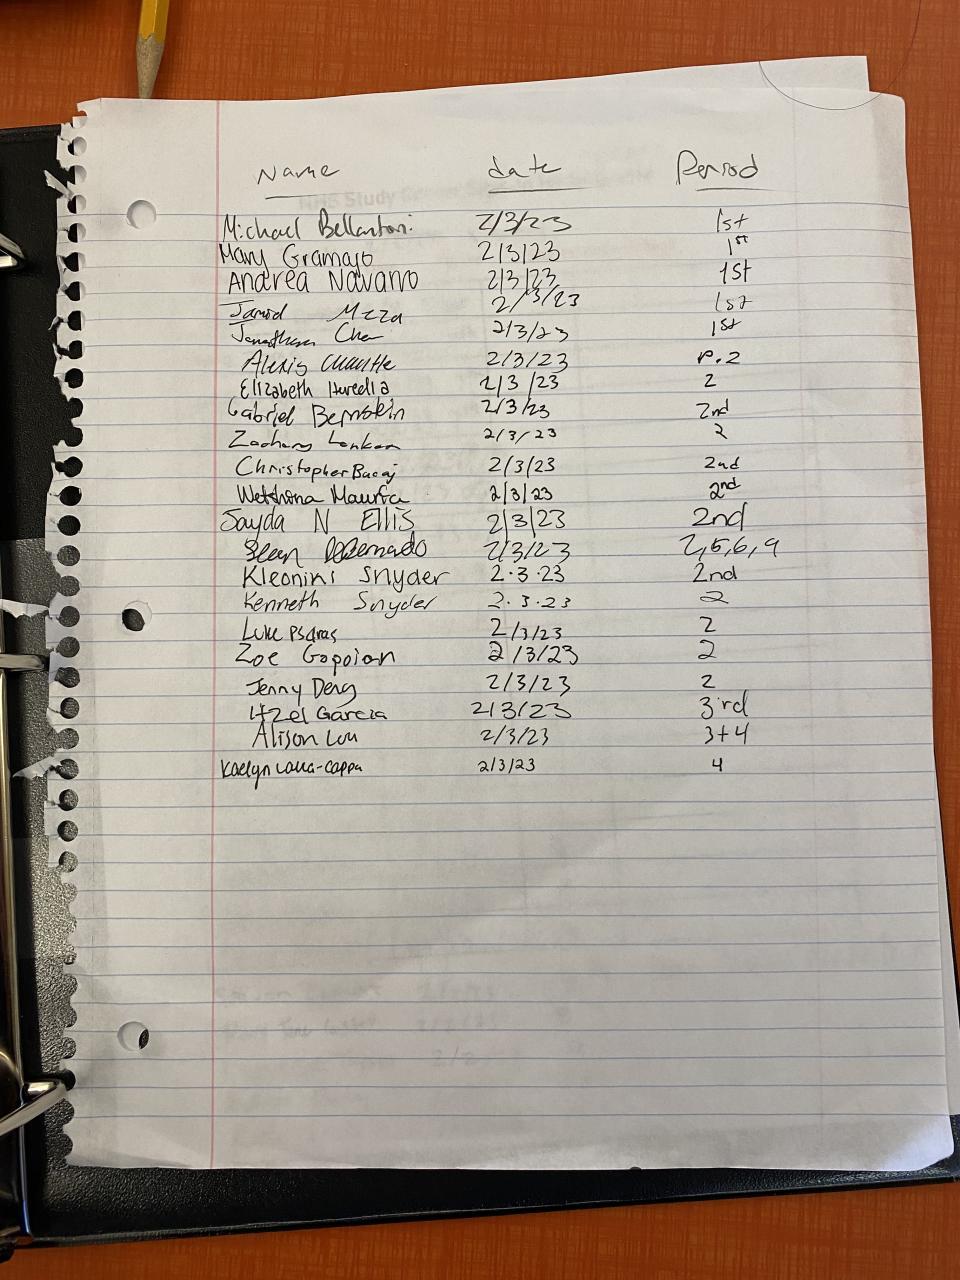 Name date Period
Michael Bellantoni 2/3/23 1st
Mary Gramajo 2/3/23 1st
Andrea Navarro 2/3/23 1st
Jarrod Meza 2/3/23 1st
Jonathan 2/3/23 1st
Alexis 2/3/23 P.2
Elizabeth Heredia 2/3/23 2
Gabriel Bernstein 2/3/23 2nd
Zachary 2/3/23 2
Christopher Bacaj 2/3/23 2nd
2/3/23 2nd
Sayda N Ellis 2/3/23 2nd
Sean 2/3/23 2,5,6,9
Kleonini Snyder 2.3.23 2nd
Kenneth Snyder 2.3.23 2
Luke Psaras 2/3/23 2
Zoe Gopoian 2/3/23 2
Jenny Deng 2/3/23 2
Itzel Garcia 2/3/23 3rd
Alison Lou 2/3/23 3+4
Kaelyn 2/3/23 4